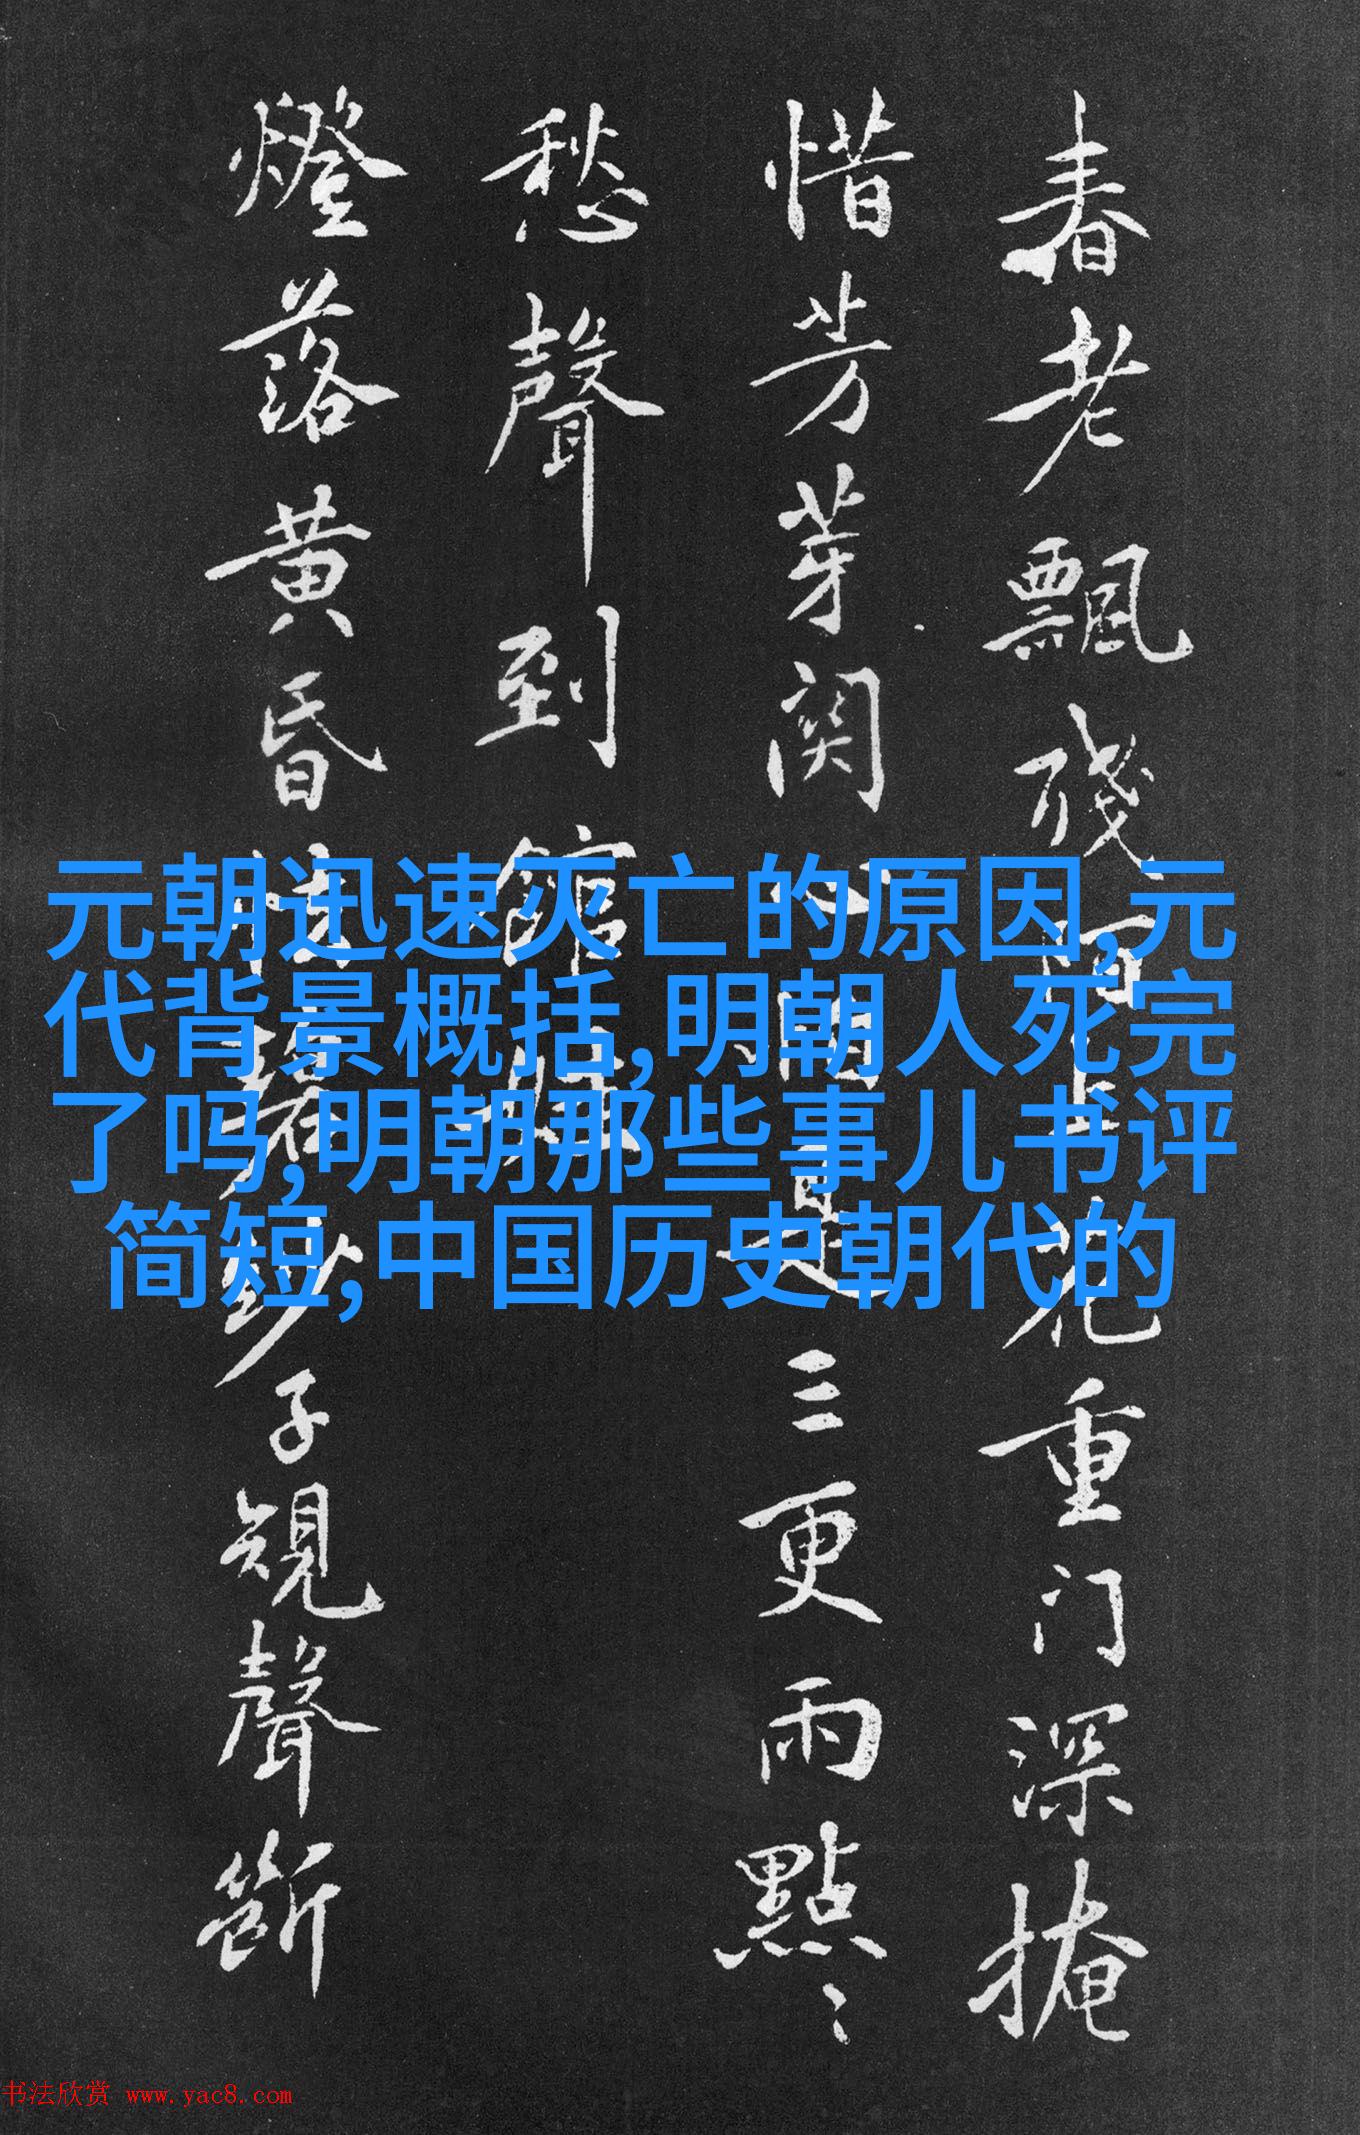 春老飄殘陌上花重门深掩
惜芳芽関心三更雨點〻
愁聲到館娃
燈落黄昏碧紗子規聲斷
元朝迅速灭亡的原因,元
代背景概括,明朝人死完
了吗,明朝那些事儿书评
简短,中国历史朝代的
书法欣赏 www.yac8.com